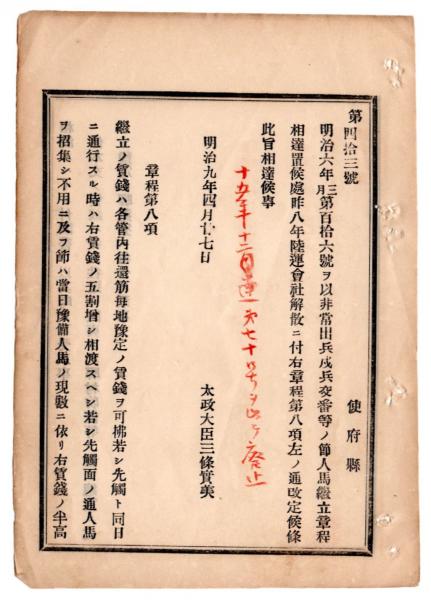 第四拾三號
使府縣
明治六年三月第百拾六號ヲ以非常出兵戍兵交番等ノ節人馬繼立章程
相達置候處昨八年陸運會社解散ニ付右章程第八項左ノ通改定候條
此旨相達候事
十五年十二月達第七十号ヲ以テ廢止
明治九年四月廿七日
太政大臣三條實美
章程第八項
繼立ノ賃錢ハ各管內往還筋每地豫定ノ賃錢ヲ可拂若シ先觸ト同日
ニ通行スル時ハ右賃錢ノ五割增シ相渡スヘシ若シ先觸面ノ通人馬
ヲ招集シ不用ニ及フ節ハ當日豫備人馬ノ現數ニ依リ右賃錢ノ半高